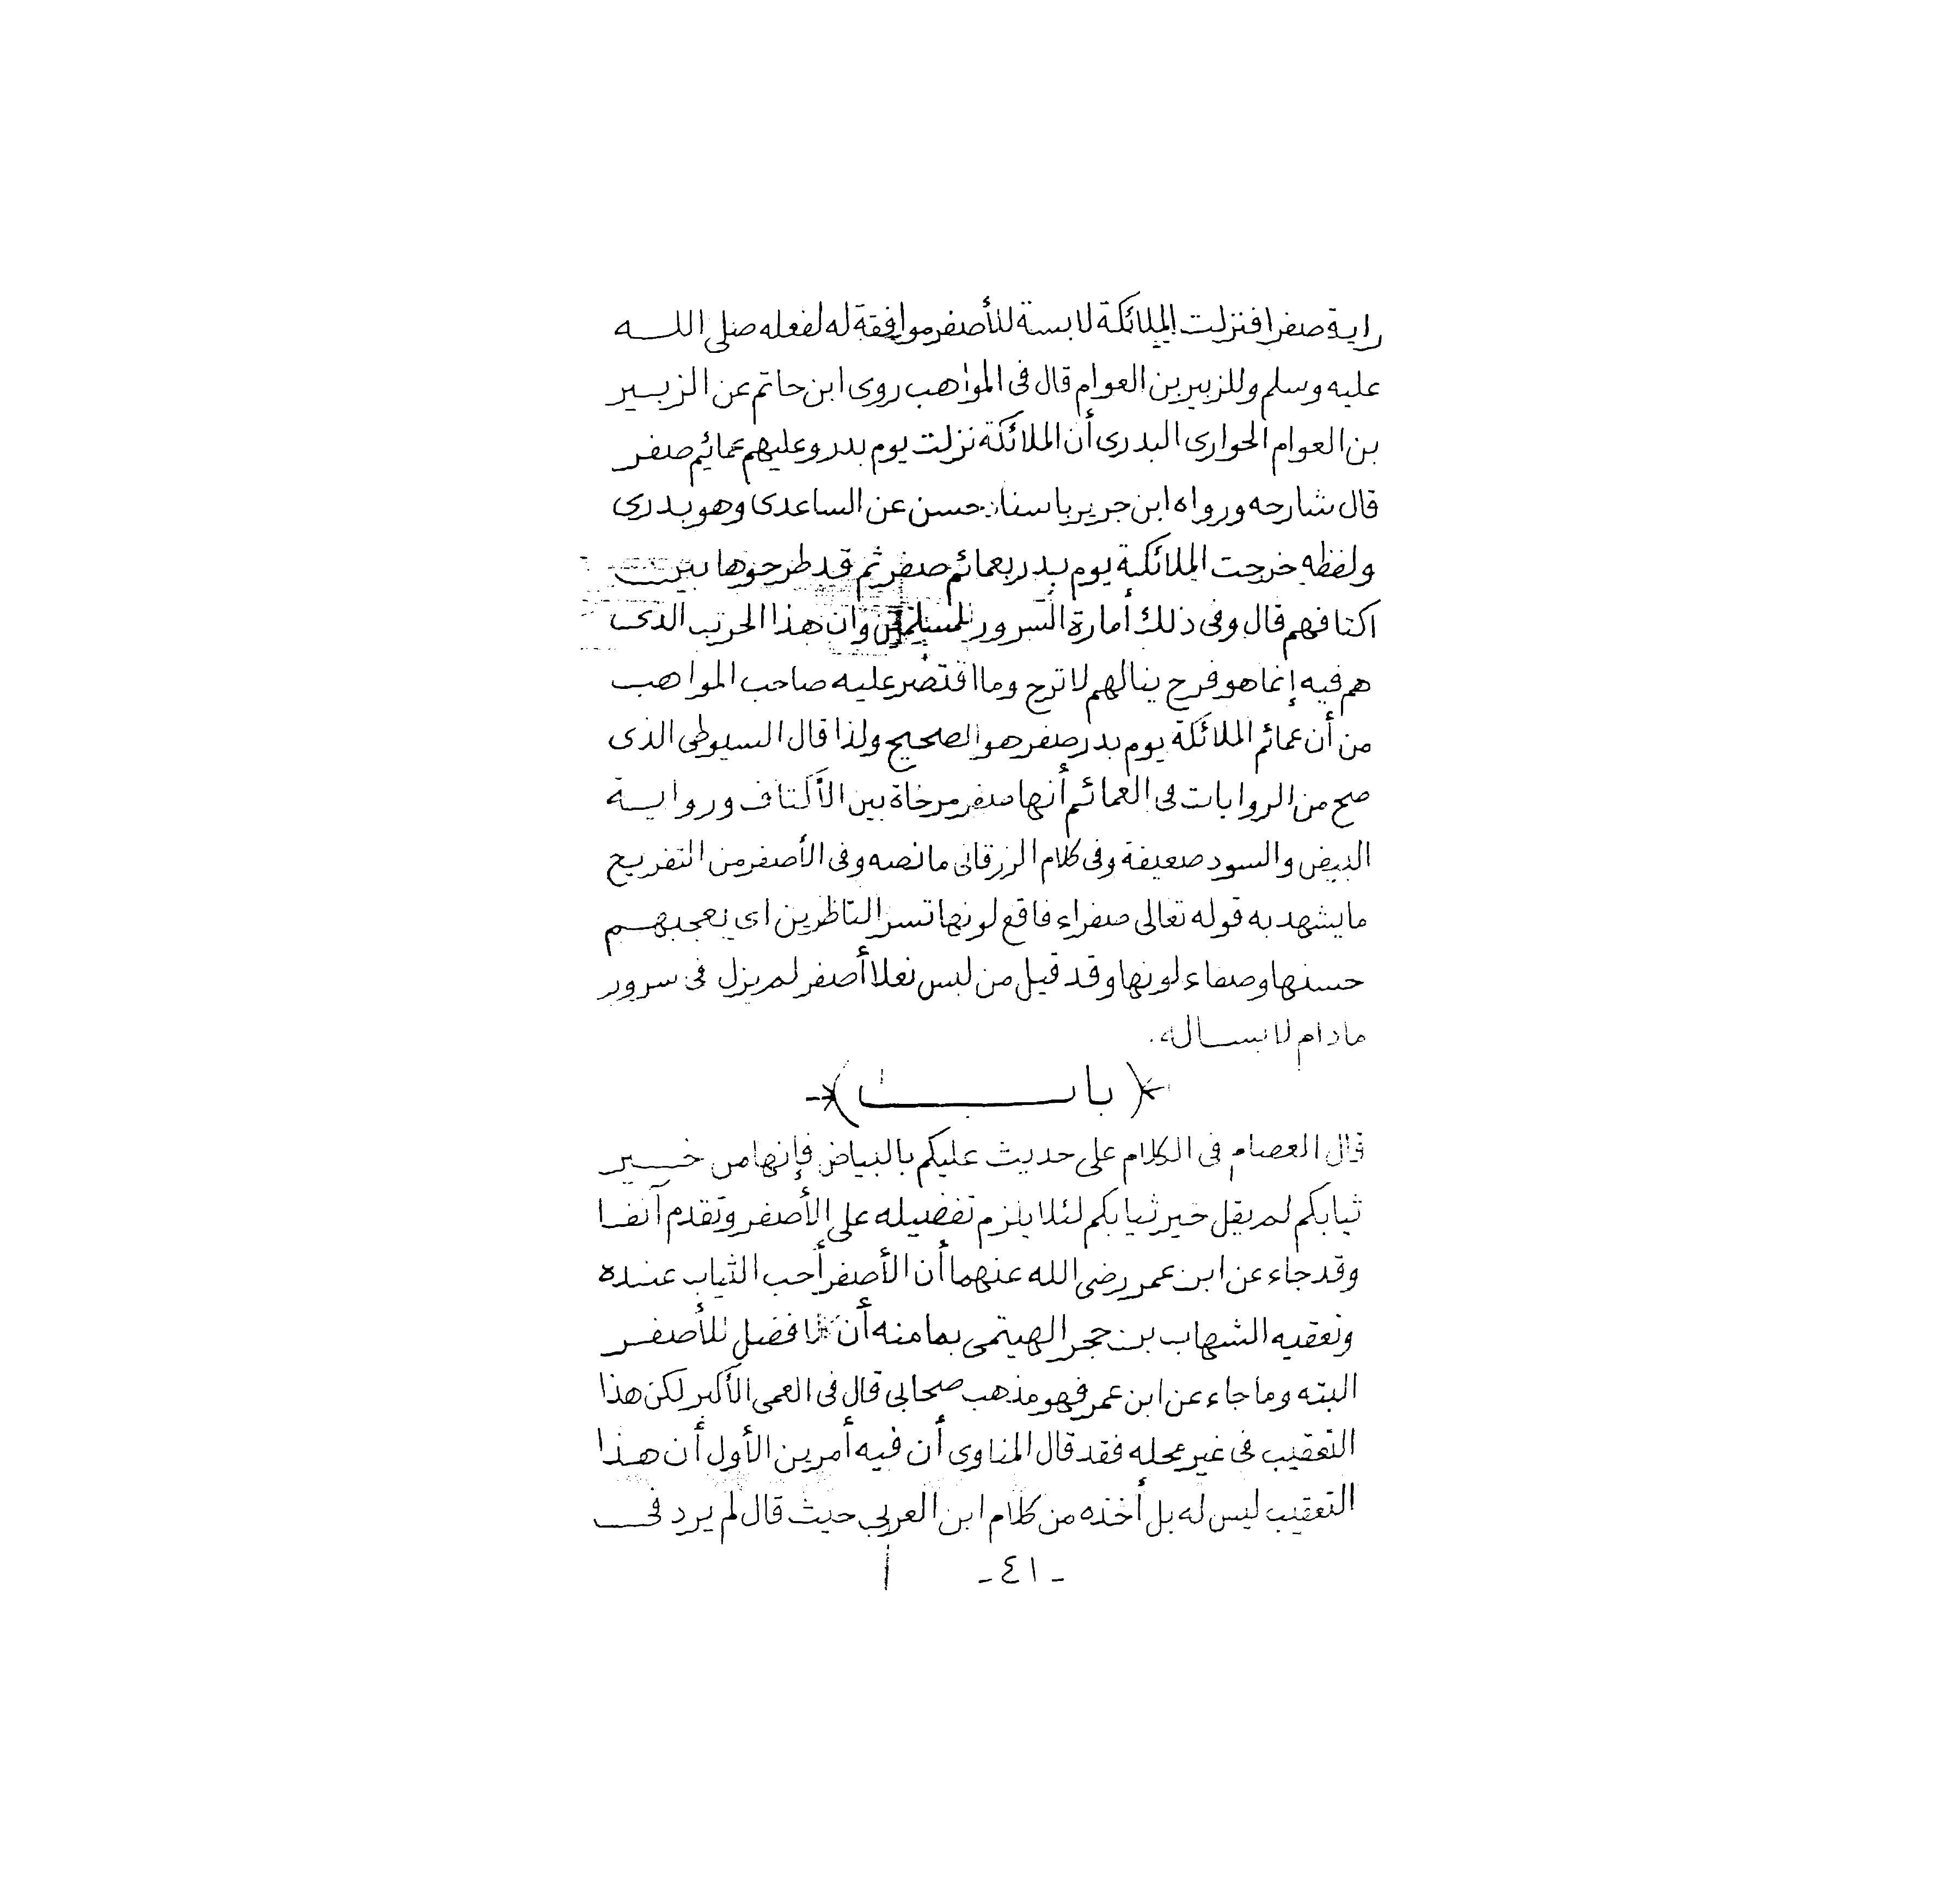 راية صفرا فنزلت الملائكة لابسة للأصفر موافقة له لفعله صلى الله
عليه وسلم وللزبير بن العوام قال فى المواهب روى ابن حاتم عن الزبير
بن العوام الحوارى البدرى أن الملائكة نزلت يوم بدر وعليهم عمائيم صفر
قال شارحه ورواه ابن جرير باسناد حسن عن الساعدى وهو بدرى
ولفظه خرجت الملائكة يوم بدر بعمائم صفر ثم قد طرحوها بين
اكتافهم قال وفى ذلك أمارة السرور للمسلمين وان هذا الحرب الذى
هم فيه إنما هو فرح ينالهم لا ترح وما اقتصر عليه صاحب المواهب
من أن عمائم الملائكة يوم بدر صفر هو الصحيح ولذا قال السيوطى الذى
صح من الروايات فى العمائم أنها صفر مرخاة بين الأكتاف ورواية
البيض والسود ضعيفة وفى كلام الزرقانى ما نصه وفى الأصفر من التفريح
ما يشهد به قوله تعالى صفراء فاقع لونها تسر الناظرين اى يعجبهم
حسنها وصفاء لونها وقد قيل من لبس نعلا أصفر لم يزل فى سرور
مادام لابساله.
(باب)
قال العصام فى الكلام على حديث عليكم بالبياض فإنها من خير
ثيابكم لم يقل خير ثيابكم لئلا يلزم تفضيله على الأصفر وتقدم آنفا
وقد جاء عن ابن عمر رضى الله عنهما أن الأصفر أحب الثياب عنده
وتعقبه الشهاب بن حجر الهيتمى بما منه أن لا فضل للأصفر
البته وما جاء عن ابن عمر فهو مذهب صحابى قال فى العمى الأكبر لكن هذا
التعقيب فى غير محله فقد قال المناوى أن فيه أمرين الأول أن هذا
التعقيب ليس له بل أخذه من كلام ابن العربي حيث قال لم يرد فى
- ٤١ -